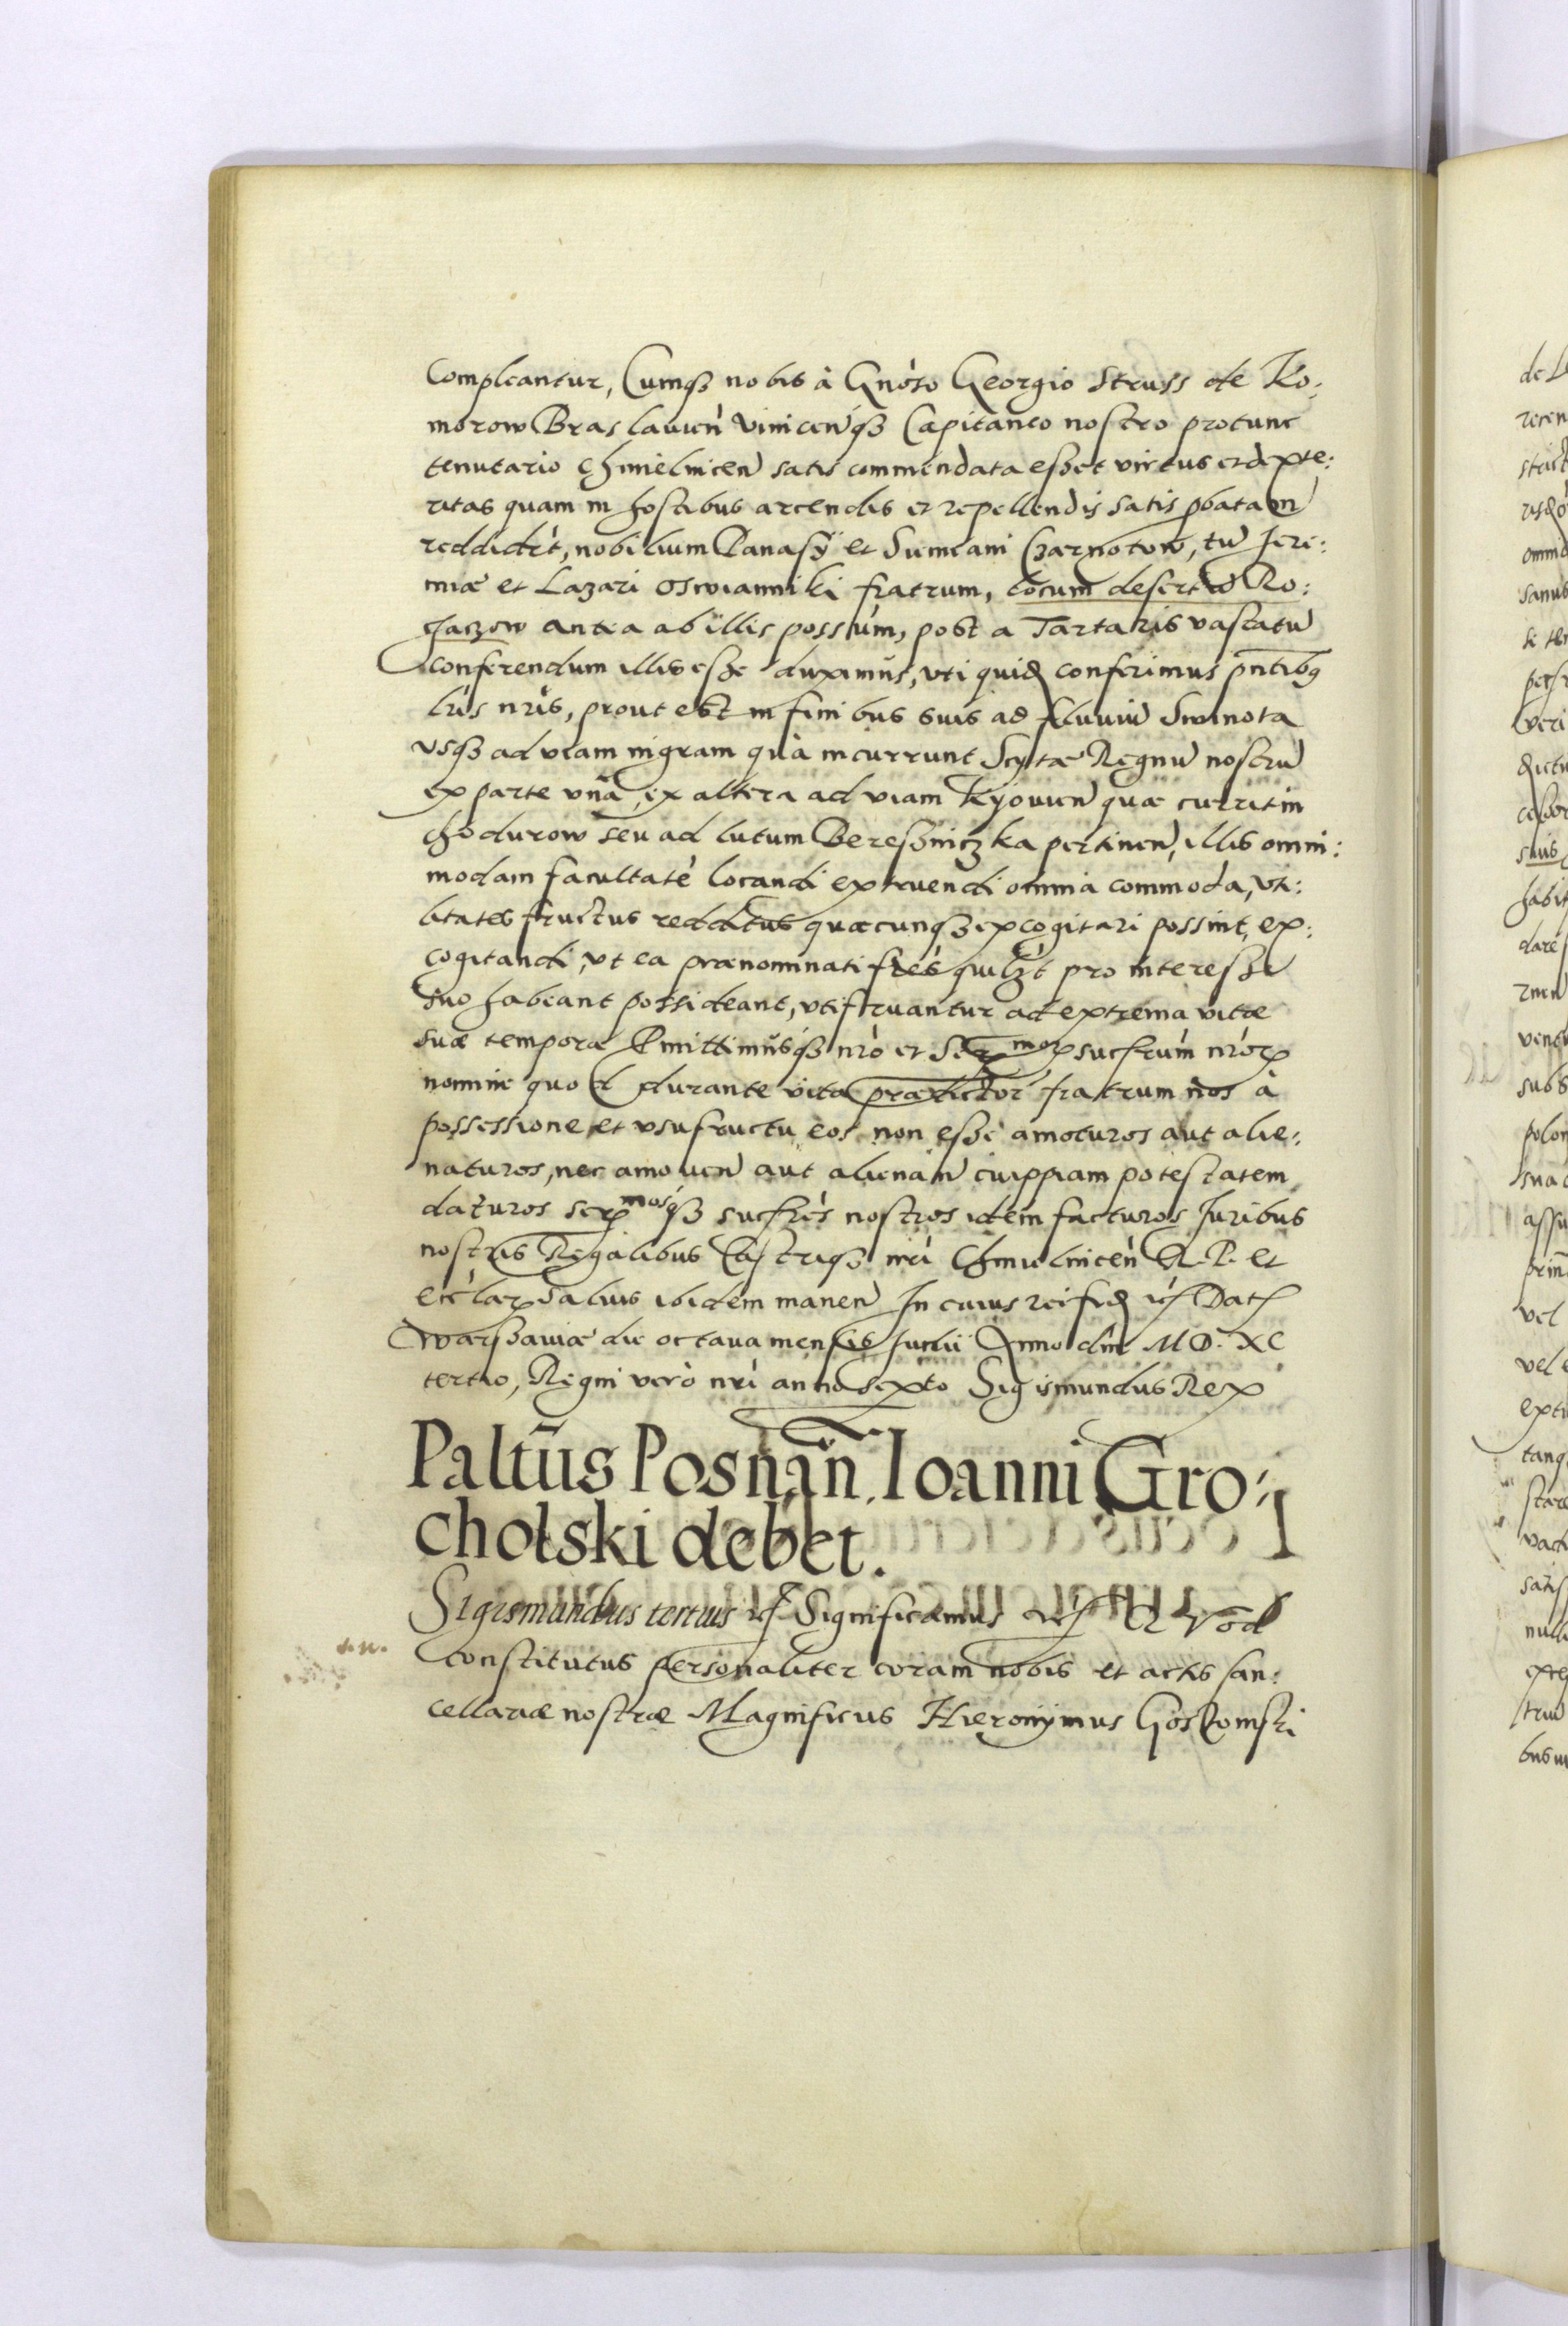 Compleantur, Cumqȝ nobis à Gnoso Georgio Struss de Ko:
morow Braslauien Vinicenqȝ Capitaneo nostro protunc
tenutario Chmielnicen satis commendata esset virtus et dexte:
ritas quam in hostibus arcendis et repellendis satis pbatam
reddidit, nobilium Panasÿ et Sumiani Czarnotow, tu Jere:
miæ et Lazari Oswianniki fratrum, locum desertū Ro:
haczow antea ab illis possum, post a Tartaris vastatū
conferendum illis esse duximus, vti quid conferimus pntibq
lris nris, prout est in finibus suis ad fluuiū Swinota
vsqȝ ad viam nigram quà incurrunt Scytæ Regnū nostrū
ex parte vna, ex altera ad viam Kyouien quæ currit in
Chodurow seu ad lutum Beresniczka pertinen, illis omni:
modam facultatē locandi extruendi omnia commoda, vti:
litates fructus redditus quæcunqȝ excogitari possint, ex:
cogitandi, vt ea prænominati fres quilzt pro interesse
suo habeant possideant, vtifruantur ad extrema vitæ
suæ tempora Pmittimusqȝ nro et Ser morx sucfrum nrorx
nomine quod durante vita prædictor fratrum nos à
possessione et vsufructu eos non esse amoturos aut alie:
naturos, nec amouen aut alienan cuippiam potestatem
daturos ser mosqȝ sucfres nostros idem facturos Juribus
nostris Regalibus Castriqȝ nri Chmielnicen R. P. et
Ecclarx saluis ibidem manen In cuius rei fid etc Datt
Warssauiæ die octaua mensis Junii Anno dni MD. XC
tertio, Regni verò nri anno sexto Sigismundus Rex
Paltus Posnan. Ioanni Gro:
cholski debet.
Sigismundus tertius etc Significamus etc Qz Vod
constitutus personaliter coram nobis et actis Can:
cellariæ nostræ Magnificus Hieronÿmus Gostomski